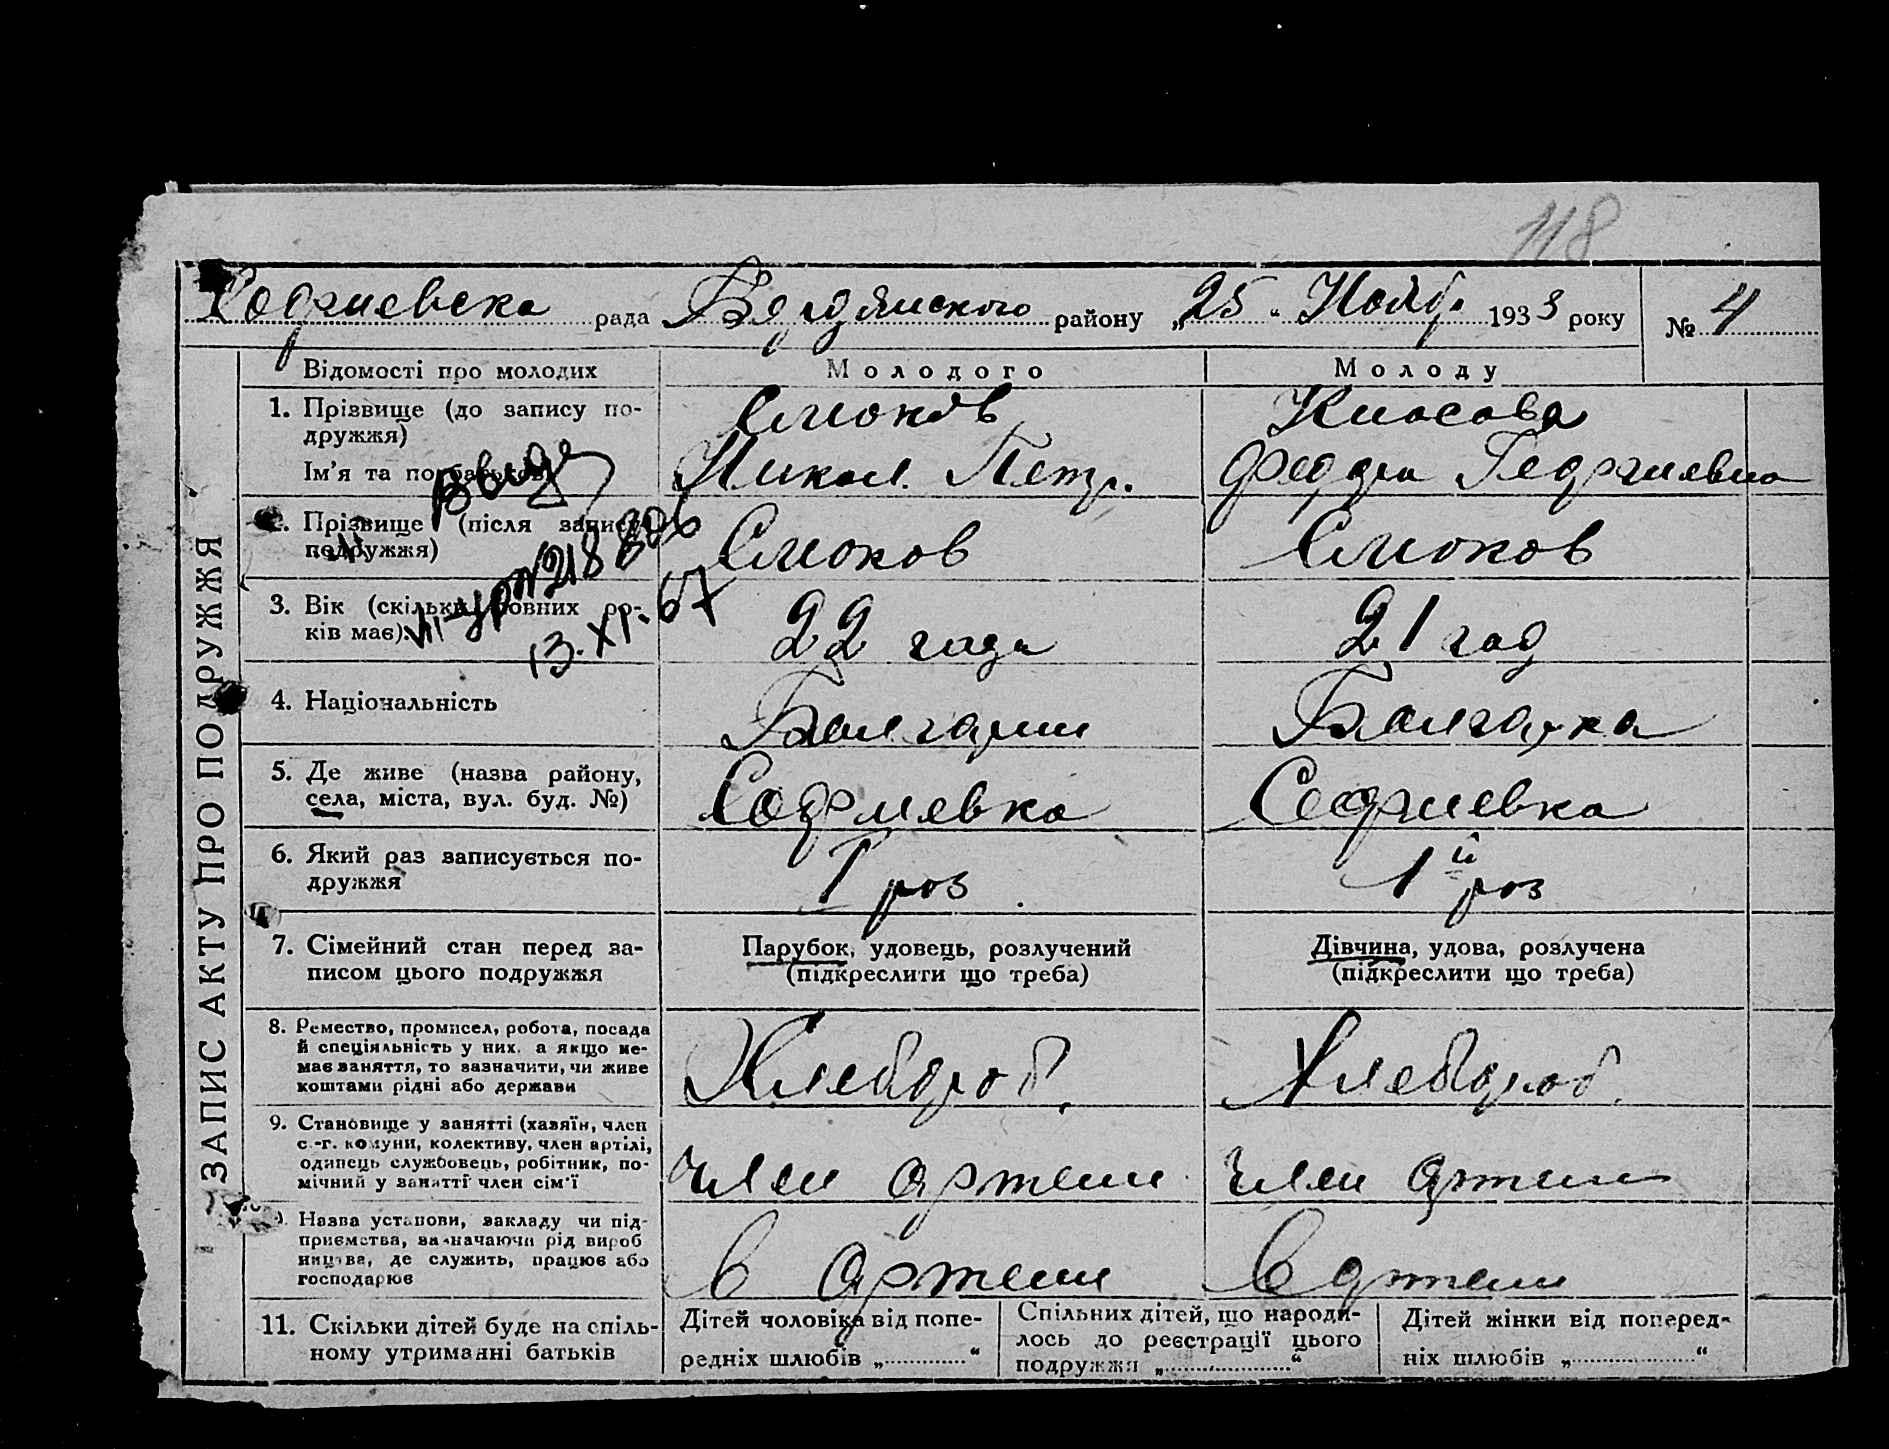 118
Софиевска рада Бердянского району „25“ Нояб. 1933 року № 4
ЗАПИС АКТУ ПРО ПОДРУЖЖЯ
Відомості про молодих Молодого Молоду
1. Прізвище (до запису подружжя)
Ім'я та по батькові
Кносова
Никол. Петр. Георгиевна
2. Прізвище (після запису подружжя)
3. Вік (скільки повних років має).
22 года 21 год
13.XI.67
4. Національність
Болгарин Болгарка
5. Де живе (назва району,
села, міста, вул. буд. №)
Софиевка Софиевка
6. Який раз записується подружжя
1 раз 1й раз
7. Сімейний стан перед записом цього подружжя
Парубок, удовець, розлучений
(підкреслити що треба)
Дівчина, удова, розлучена
(підкреслити що треба)
8. Ремество, промисел, робота, посада
й спеціяльність у них, а якщо не-
має заняття, то зазначити, чи живе
коштами рідні або держави
Хлебороб. Хлебороб.
9. Становище у занятті (хазяїн, член
с.-г. комуни, колективу, член артілі,
одинець службовець, робітник, по-
мічний у занятті член сім'ї
член артели член артели
Назва установи, закладу чи під-
приємства, зазначаючи рід вироб
ництва, де служить, працює або
господарює
в артели в артели
11. Скільки дітей буде на спіль-
ному утриманні батьків
Дітей чоловіка від попе-
редніх шлюбів „.............“
Спільних дітей, що народи-
лось до реєстрації цього
подружжя „.............“
Дітей жінки від поперед-
ніх шлюбів „.............“